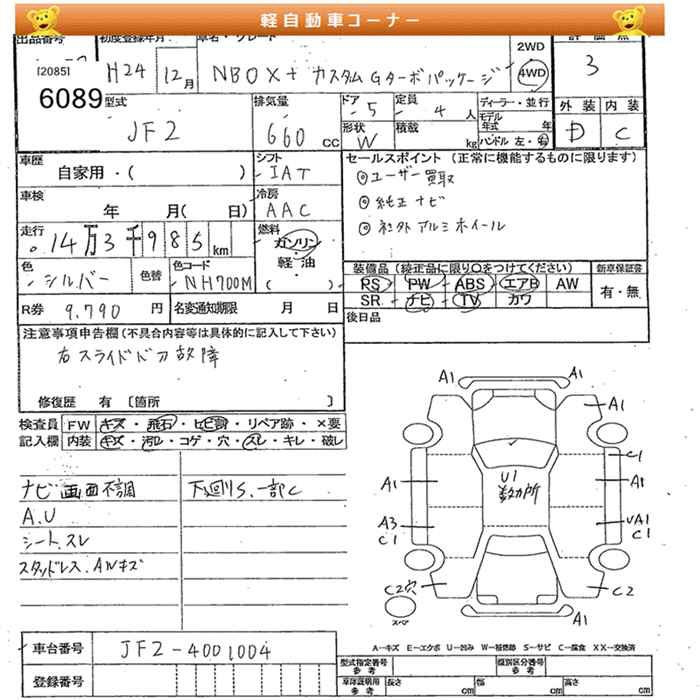 軽自動車コーナー
出品番号 初度登録年月 車名・グレード 2WD 評価点
[2085] H24 12月 NBOX+ カスタムGターボパッケージ 4WD 3
6089 型式 排気量 ドア 定員 ディーラー・並行 外装 内装
JF2 660 cc 5 4 人 モデル年式 年 D C
形状 W 積載 kg ハンドル 左・右
車歴 シフト セールスポイント (正常に機能するものに限ります)
自家用・( ) IAT ◎ユーザー買取
車検 冷房 ◎純正ナビ
年 月( 日) AAC ◎社外アルミホイール
走行 燃料
14万3千985km ガソリン・軽・油 ( )
色 シルバー 色替 色コード NH700M 装備品 (純正品に限り○をつけてください) 新車保証書
PS PW ABS エアB AW 有・無
R券 9,790 円 名変通知期限 月 日 SR ナビ TV カワ
後日品
注意事項申告欄 (不具合内容等は具体的に記入して下さい)
右スライドドア故障
修復歴 有 〔箇所 〕
検査員 FW キズ・飛石・ヒビ割・リペア跡・×要
記入欄 内装 キズ・汚レ・コゲ・穴・スレ・キレ・破レ
ナビ画面不調 下廻りS、一部C
A.U
シート、スレ
スタッドレス、AWキズ
A1 A1
A1
C1
A1 U1 A1
数カ所
A3 UA1
C1 C1
C2穴 C2
スペア A1
A-キズ E-エクボ U-凹み W-補修跡 S-サビ C-腐食 XX-交換済
車台番号 JF2-4001004
型式指定番号 参考 類別区分番号 参考
登録番号 車庫証明用 参考 長さ cm 幅 cm 高さ cm